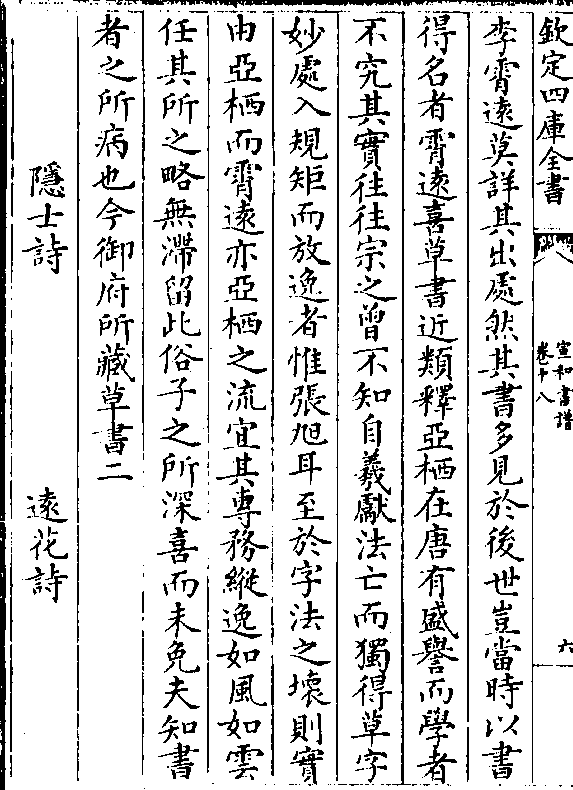 欽定四庫全書
宣和書譜
卷十八
六
李霄遠莫詳其出處然其書多見於後世豈當時以書
得名者霄遠喜草書近類釋亞栖在唐有盛譽而學者
不究其實往往宗之曾不知自羲獻法亡而獨得草字
妙處入規矩而放逸者惟張旭耳至於字法之壞則實
由亞栖而霄遠亦亞栖之流宜其專務縱逸如風如雲
任其所之略無滯留此俗子之所深喜而未免夫知書
者之所病也今御府所藏草書二
隱士詩 遠花詩